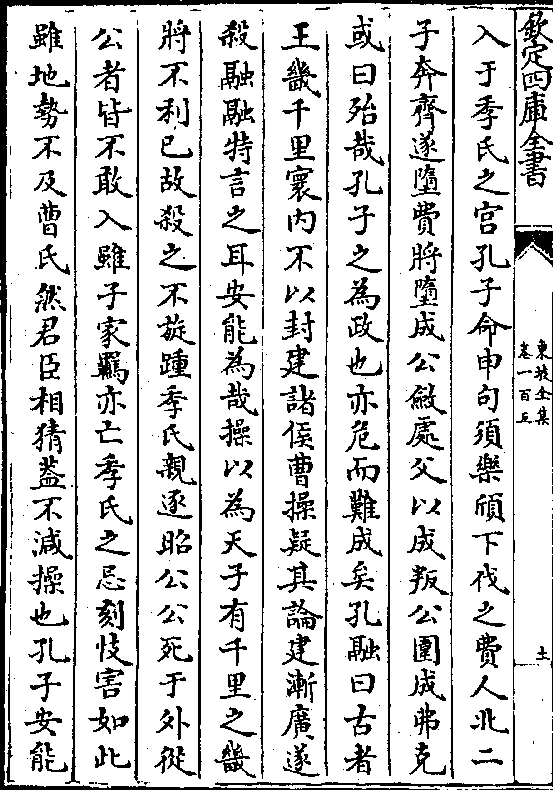 欽定四庫全書
東坡全集
卷一百五
十
入于季氏之宮孔子命申句須樂頎下伐之費人北二
子奔齊遂墮費將墮成公斂處父以成叛公圍成弗克
或曰殆哉孔子之為政也亦危而難成矣孔融曰古者
王畿千里寰内不以封建諸侯曹操疑其論建漸廣遂
殺融融特言之耳安能為哉操以為天子有千里之畿
將不利已故殺之不旋踵季氏親逐昭公公死于外從
公者皆不敢入雖子家羈亦亡季氏之忌刻忮害如此
雖地勢不及曹氏然君臣相猜蓋不減操也孔子安能